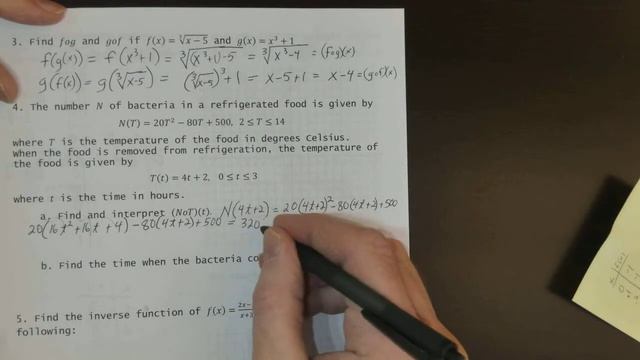 3. Find fog and gof if f(x) = ∛x−5 and g(x) = x³ + 1
f(g(x)) = f(x³+1) = ∛(x³+1)−5 = ∛x³−4 = (fog)(x)
g(f(x)) = g(∛x−5) = (∛x−5)³+1 = x−5+1 = x−4 = (gof)(x)
4. The number N of bacteria in a refrigerated food is given by
N(T) = 20T² − 80T + 500, 2 ≤ T ≤ 14
where T is the temperature of the food in degrees Celsius.
When the food is removed from refrigeration, the temperature of
the food is given by
T(t) = 4t + 2, 0 ≤ t ≤ 3
where t is the time in hours.
a. Find and interpret (NoT)(t). N(4t+2) = 20(4t+2)²−80(4t+2)+500
20(16t²+16t+4)−80(4t+2)+500 = 320
b. Find the time when the bacteria
5. Find the inverse function of f(x) =
following: